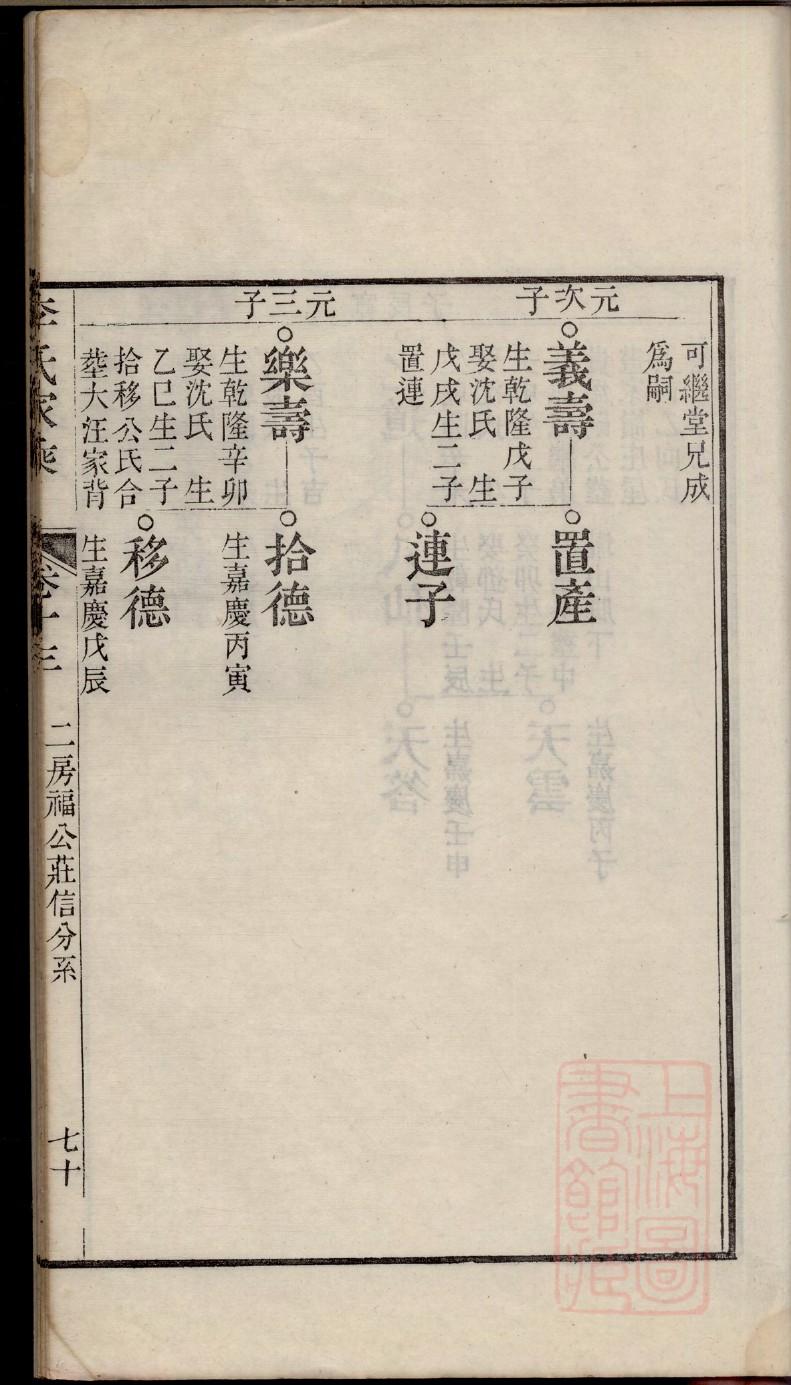 可繼堂兄成
爲嗣
元次子
義壽
生乾隆戊子
娶沈氏　生
戊戌生二子
置連
置產
連子
元三子
樂壽
生乾隆辛卯
娶沈氏　生
乙巳生二子
拾移公氏合
塟大汪家背
拾德
生嘉慶丙寅
移德
生嘉慶戊辰
李氏家乘
卷十三
二房福公莊信分系
七十
上海圖
書館藏